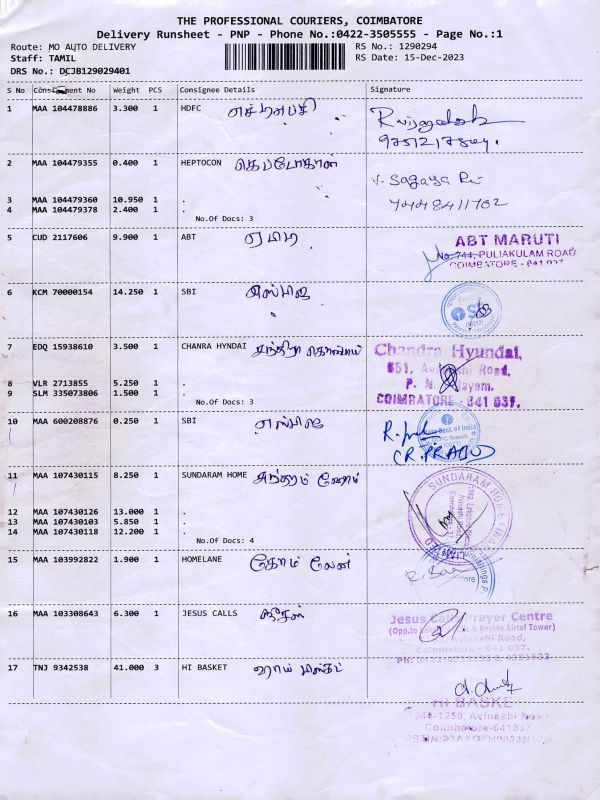 THE PROFESSIONAL COURIERS, COIMBATORE
Delivery Runsheet - PNP - Phone No.:0422-3505555 - Page No.:1
Route: MO AUTO DELIVERY RS No.: 1290294
Staff: TAMIL RS Date: 15-Dec-2023
DRS No.: DCJB129029401
S No Consignment No Weight PCS Consignee Details Signature
1 MAA 104478886 3.300 1 HDFC எச்டிஎப்சி
2 MAA 104479355 0.400 1 HEPTOCON கெப்டோகான்
V. Sagaya
3 MAA 104479360 10.950 1 .
4 MAA 104479378 2.400 1 . 7448411702
No.Of Docs: 3
5 CUD 2117606 9.900 1 ABT ABT MARUTI
No. 744, PULIAKULAM ROAD
COIMBATORE - 641 037
6 KCM 70000154 14.250 1 SBI எஸ்பிஐ SBI
7 EDQ 15938610 3.500 1 CHANRA HYNDAI சந்திரா Chandra Hyundai,
851, Road,
8 VLR 2713855 5.250 1 .
9 SLM 335073806 1.500 1 . COIMBATORE - 641 037.
No.Of Docs: 3
10 MAA 600208876 0.250 1 SBI எஸ்பிஐ
Bank of India
CR. PRABU
11 MAA 107430115 8.250 1 SUNDARAM HOME சுந்தரம் ஹோம் SUNDARAM HOME
12 MAA 107430126 13.000 1 .
13 MAA 107430103 5.850 1 .
14 MAA 107430118 12.200 1 .
No.Of Docs: 4
15 MAA 103992822 1.900 1 HOMELANE ஹோம் லேன்
16 MAA 103308643 6.300 1 JESUS CALLS ஜீசஸ் Jesus Calls Prayer Centre
(Opp.to & Beside Airtel Tower)
Avinashi Road,
Coimbatore - 641 037.
17 TNJ 9342538 41.000 3 HI BASKET ஹாய் பாஸ்கட்
HI BASKE
1250, Avinashi Road
Coimbatore-641037